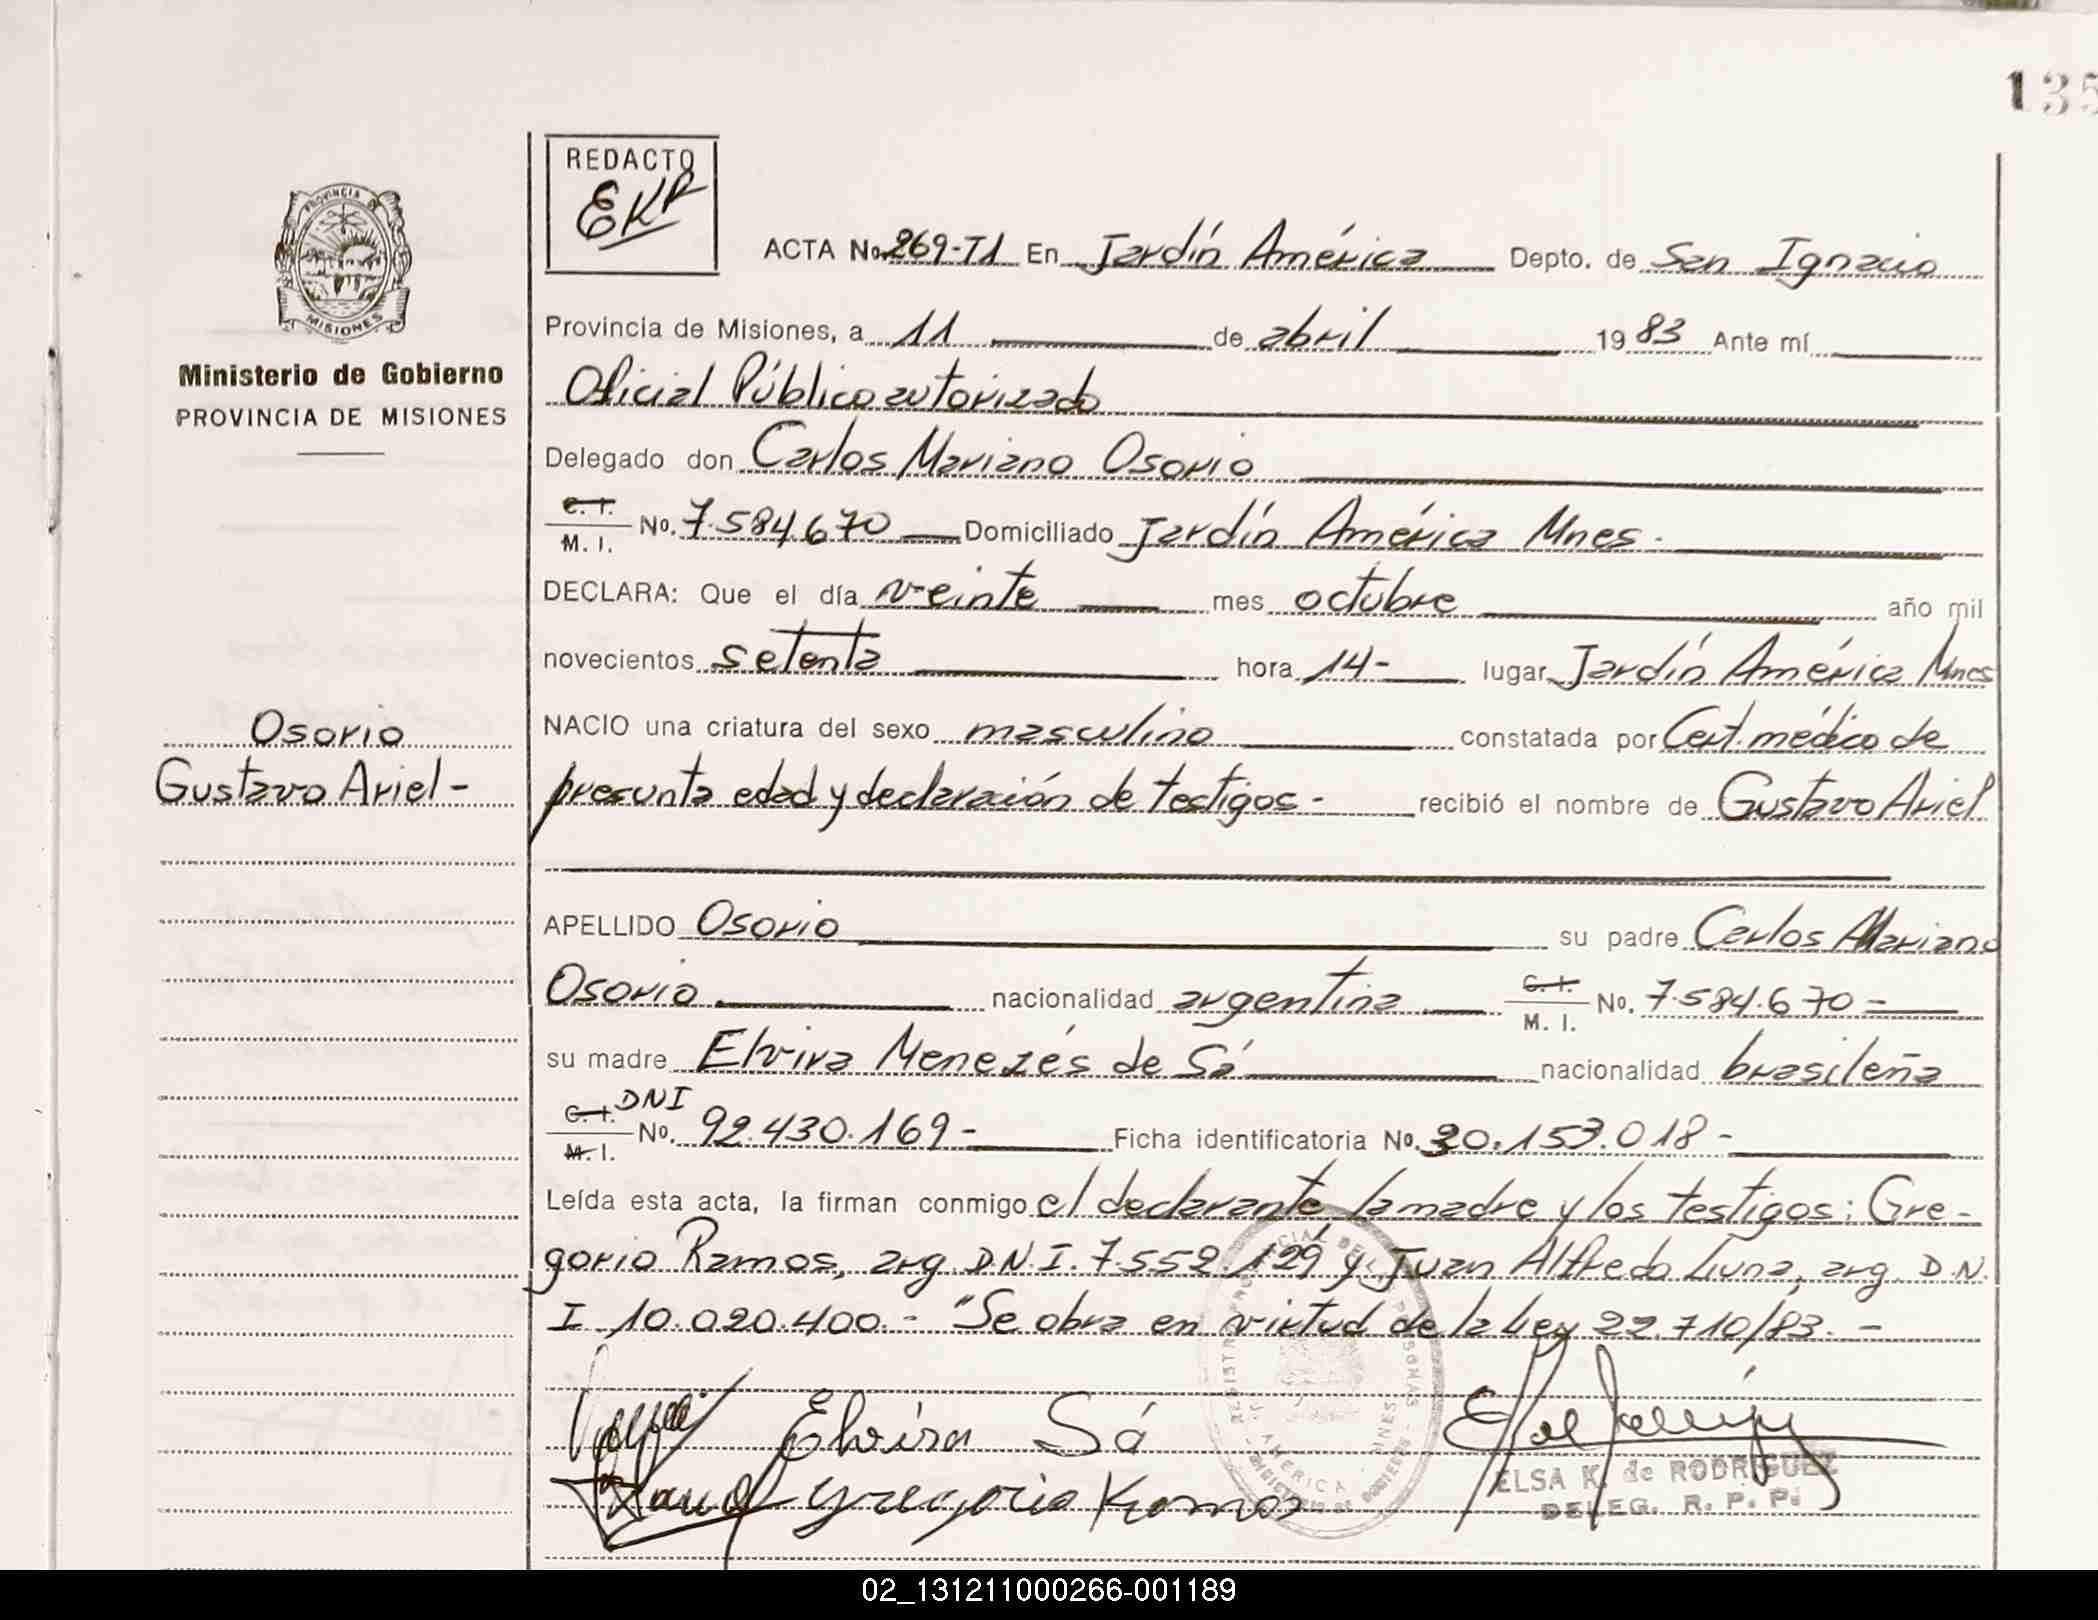 135
REDACTO
EKR
PROVINCIA DE
MISIONES
Ministerio de Gobierno
PROVINCIA DE MISIONES
ACTA No. 269-T1 En Jardín América Depto. de San Ignacio
Provincia de Misiones, a 11 de abril 1983 Ante mí
Oficial Público autorizado
Delegado don Carlos Mariano Osorio
C. I.
M. I. No. 7.584.670 Domiciliado Jardín América Mnes.
DECLARA: Que el día veinte mes octubre año mil
novecientos setenta hora 14- lugar Jardín América Mnes
Osorio
Gustavo Ariel -
NACIO una criatura del sexo masculino constatada por Cert. médico de
presunta edad y declaración de testigos - recibió el nombre de Gustavo Ariel
APELLIDO Osorio su padre Carlos Mariano
Osorio nacionalidad argentina C. I. M. I. No. 7.584.670 -
su madre Elvira Menezés de Sá nacionalidad brasileña
C. I. DNI
M. I. No. 92.430.169 - Ficha identificatoria No. 20.153.018 -
Leída esta acta, la firman conmigo el declarante la madre y los testigos: Gre-
gorio Ramos, arg. D.N.I. 7.552.129 y Juan Alfredo Luna, arg. D.N.
I 10.020.400.- "Se obra en virtud de la Ley 22.710/83. -
Elvira Sá
Gregorio Ramos
ELSA K. de RODRIGUEZ
DELEG. R. P. P.
02_131211000266-001189